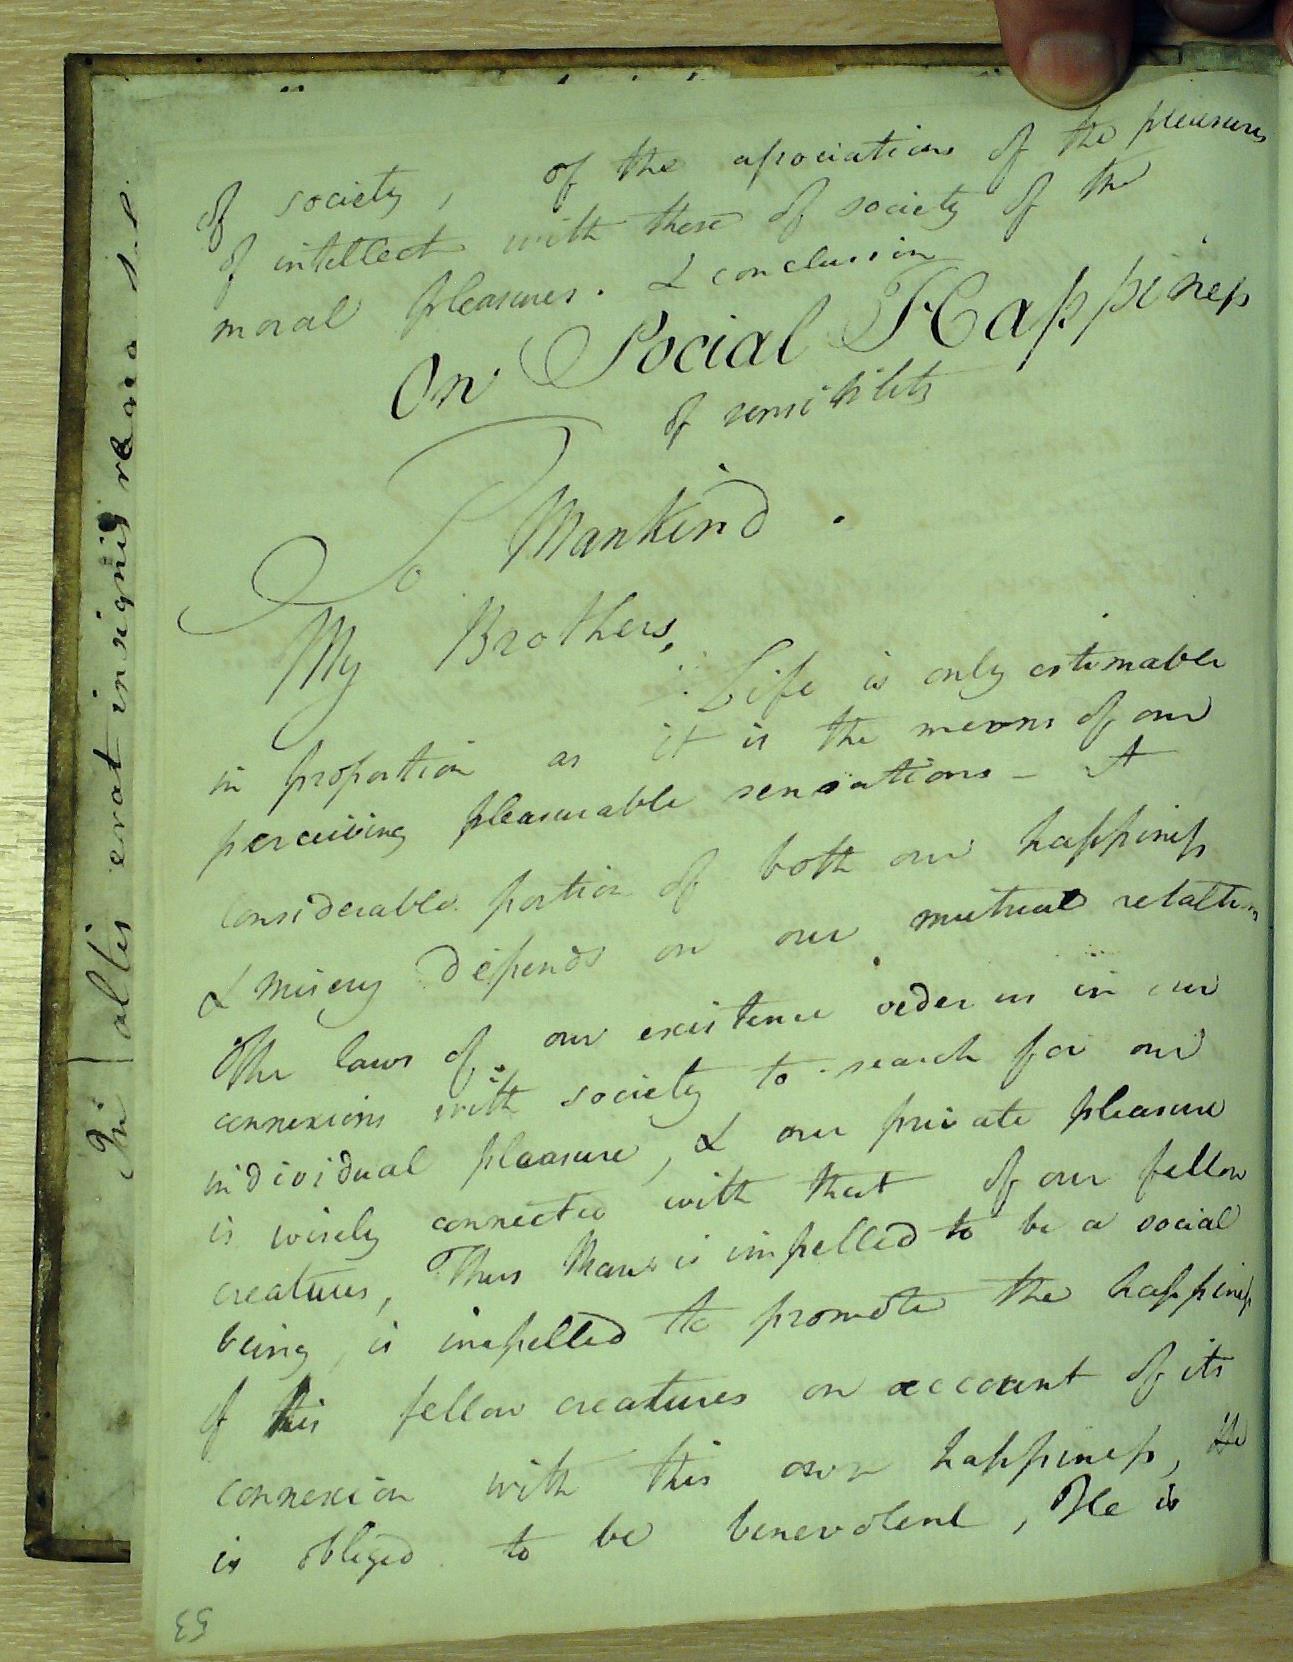 of society, of the associations of the pleasures
of intellect with those of society of the
moral pleasures. & conclusion
On Social Happiness
of sensibility
To Mankind.
My Brothers,
Life is only estimable
in proportion as it is the means of our
perceiving pleasurable sensations - A
considerable portion of both our happiness
& misery depends on our mutual relations
The laws of our existence order us in our
connexions with society to search for our
individual pleasure, & our private pleasure
is wisely connected with that of our fellow
creatures, Thus Man is impelled to be a social
being, is impelled to promote the happiness
of his fellow creatures on account of its
connexion with his own happiness, He
is obliged to be benevolent, He is
53
altis erat insignis